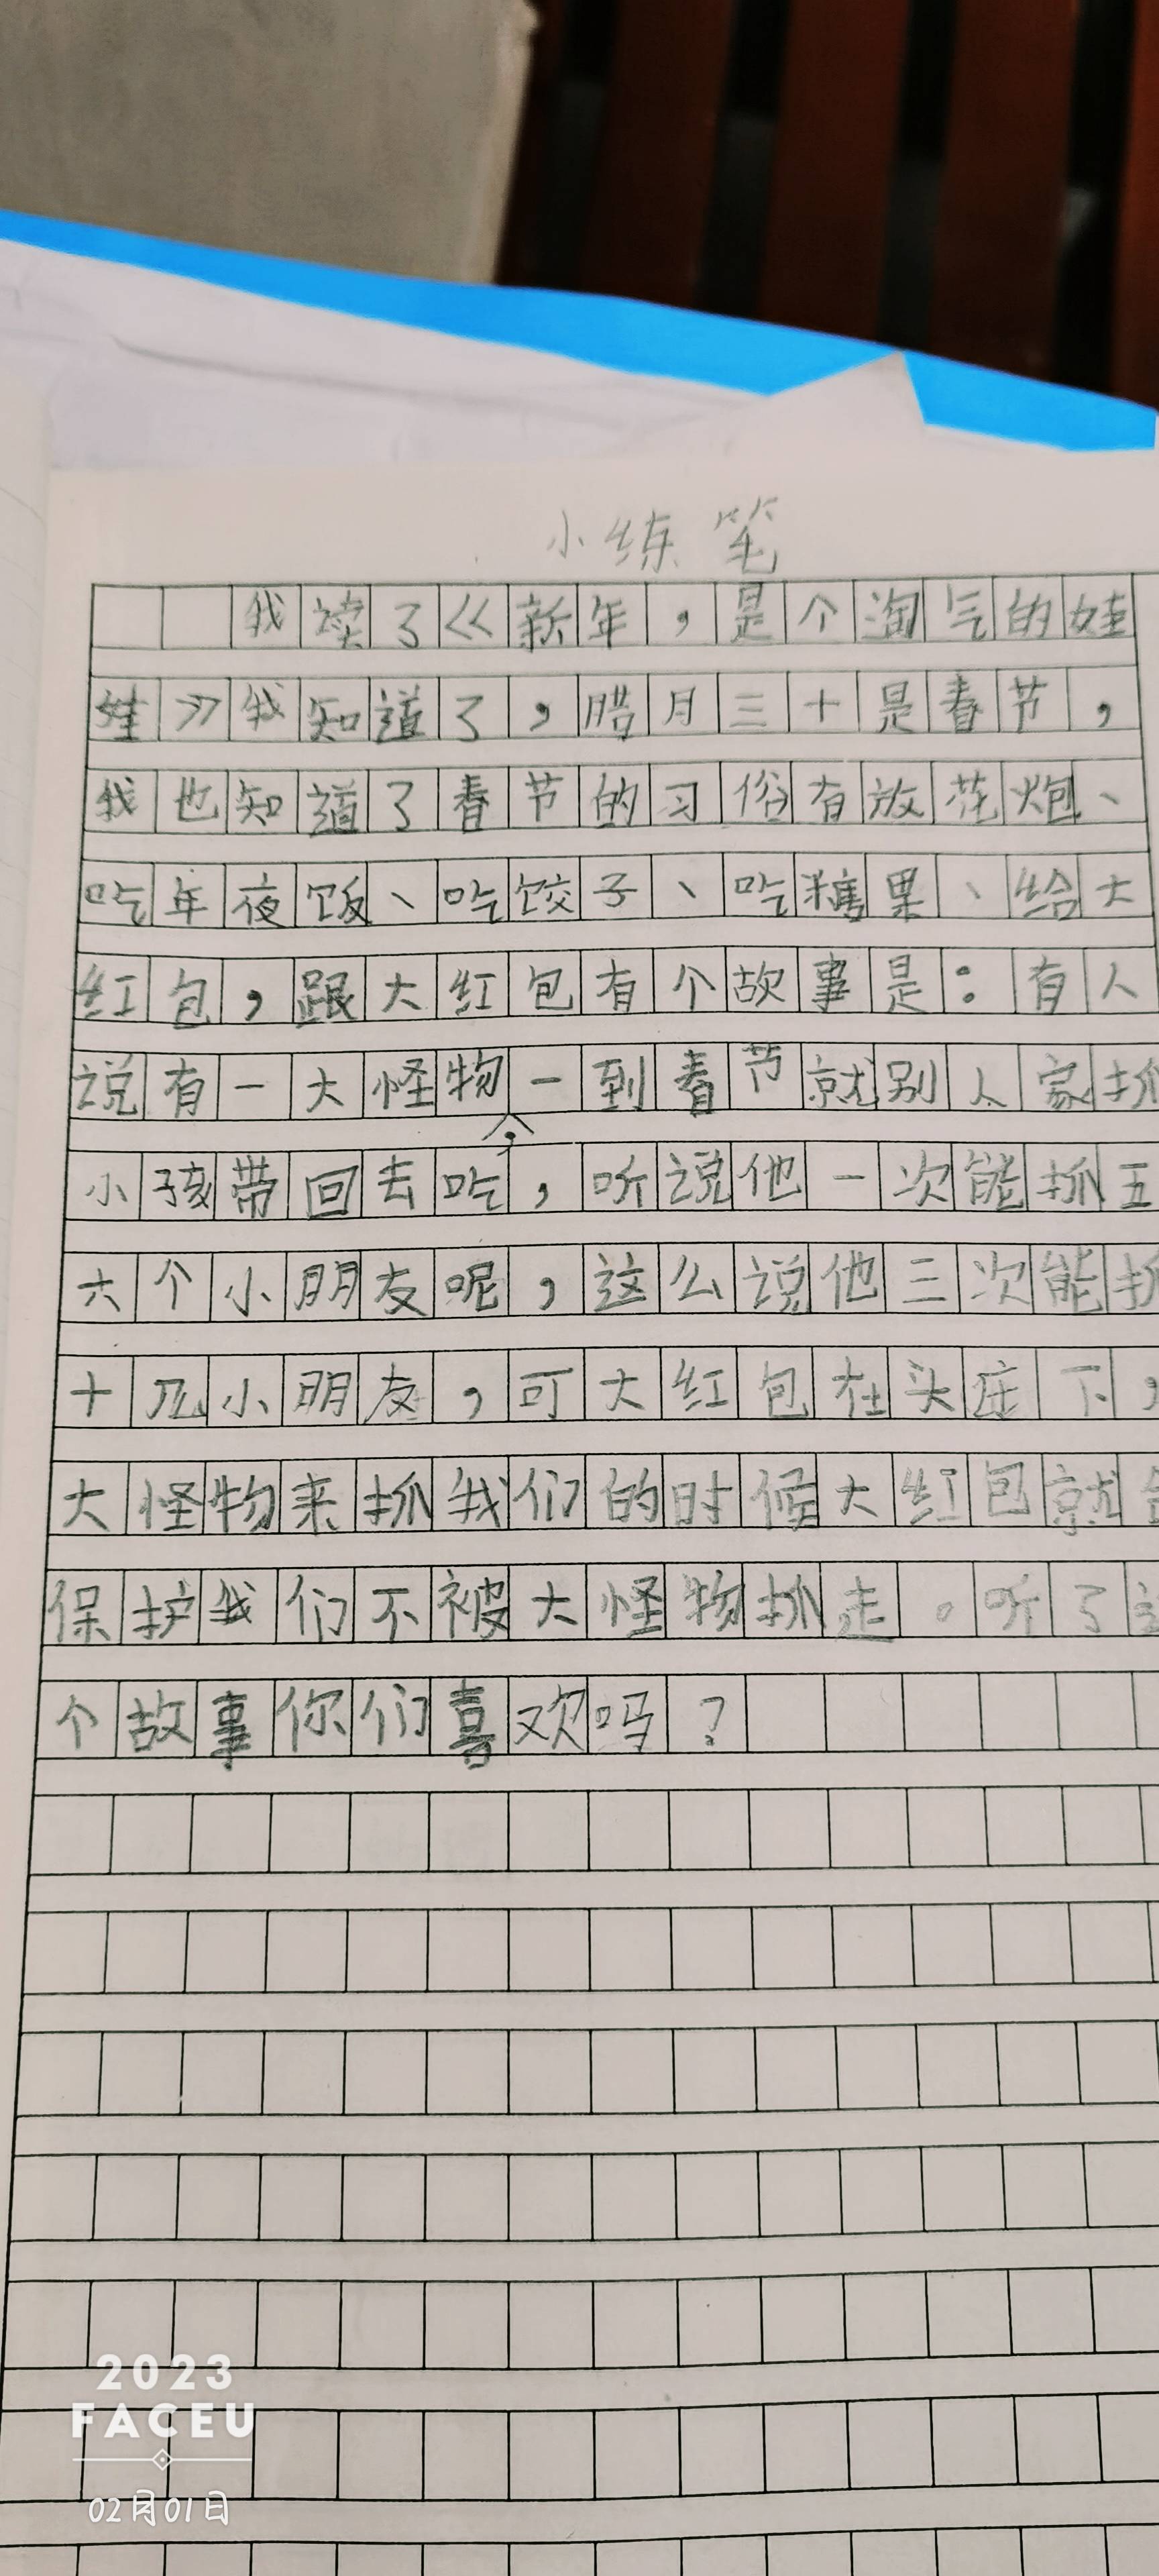 小练笔
我读了《新年,是个淘气的娃
娃》我知道了,腊月三十是春节,
我也知道了春节的习俗有放花炮、
吃年夜饭、吃饺子、吃糖果、给大
红包,跟大红包有个故事是:有人
说有一大怪物,一到春节就别人家抓
小孩带回去吃,听说他一次能抓五
六个小朋友呢,这么说他三次能抓
十几小朋友,可大红包在头庄下,
大怪物来抓我们的时候大红包就会
保护我们不被大怪物抓走。听了这
个故事你们喜欢吗?
2023
FACEU
02月01日